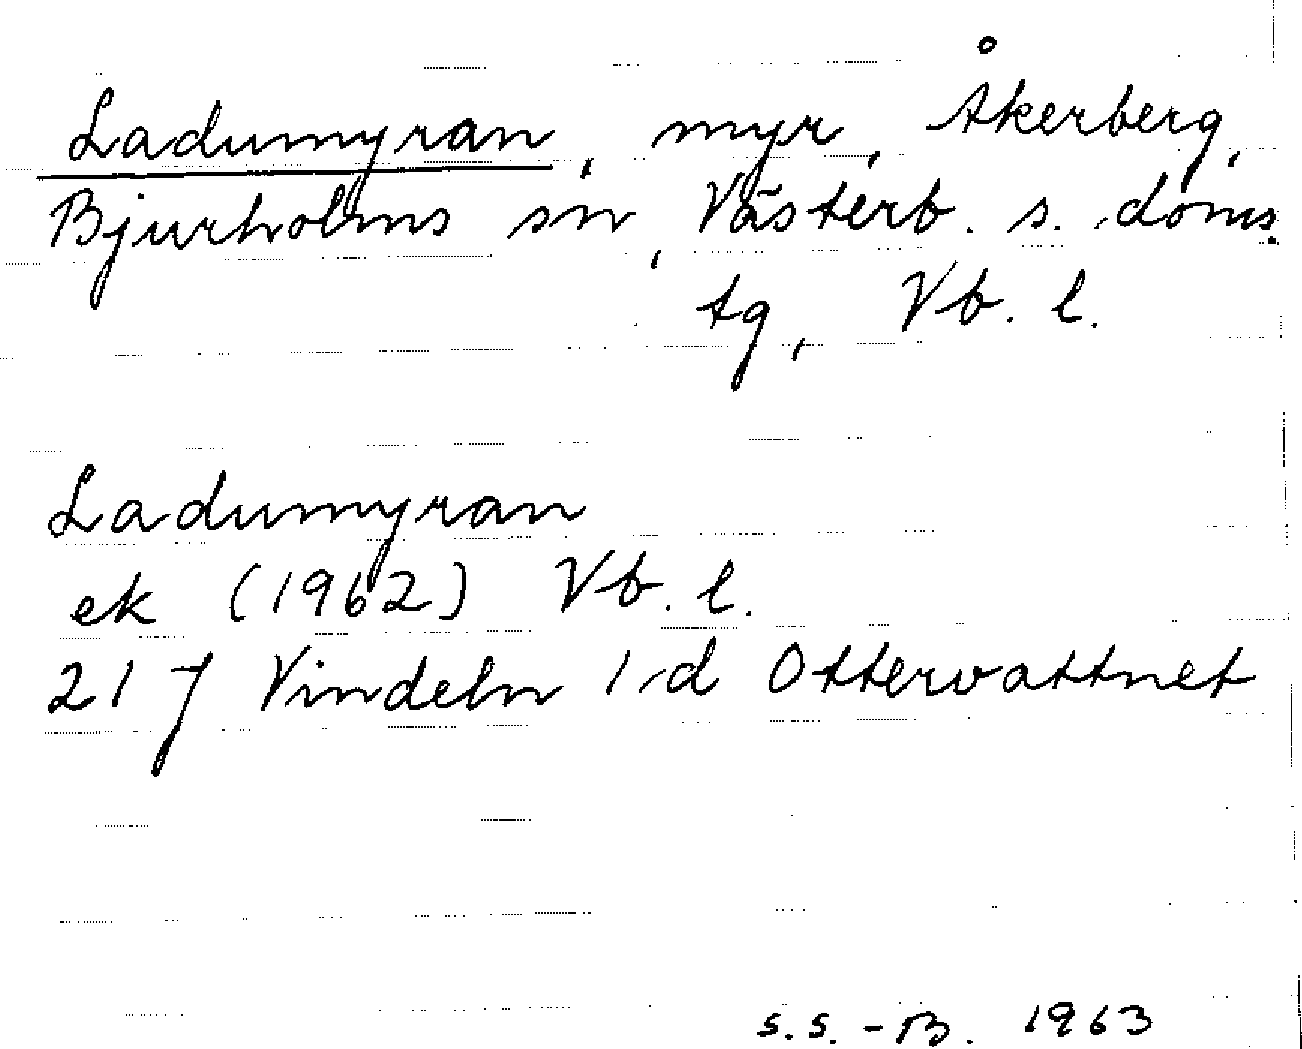 Ladumyran, myr, Åkerberg,
Bjurholms sn, Västerb. s. doms.
tg, Vb. l.
Ladumyran
ek (1962) Vb. l.
21 J Vindeln 1 d Ottervattnet
S.S.-B. 1963